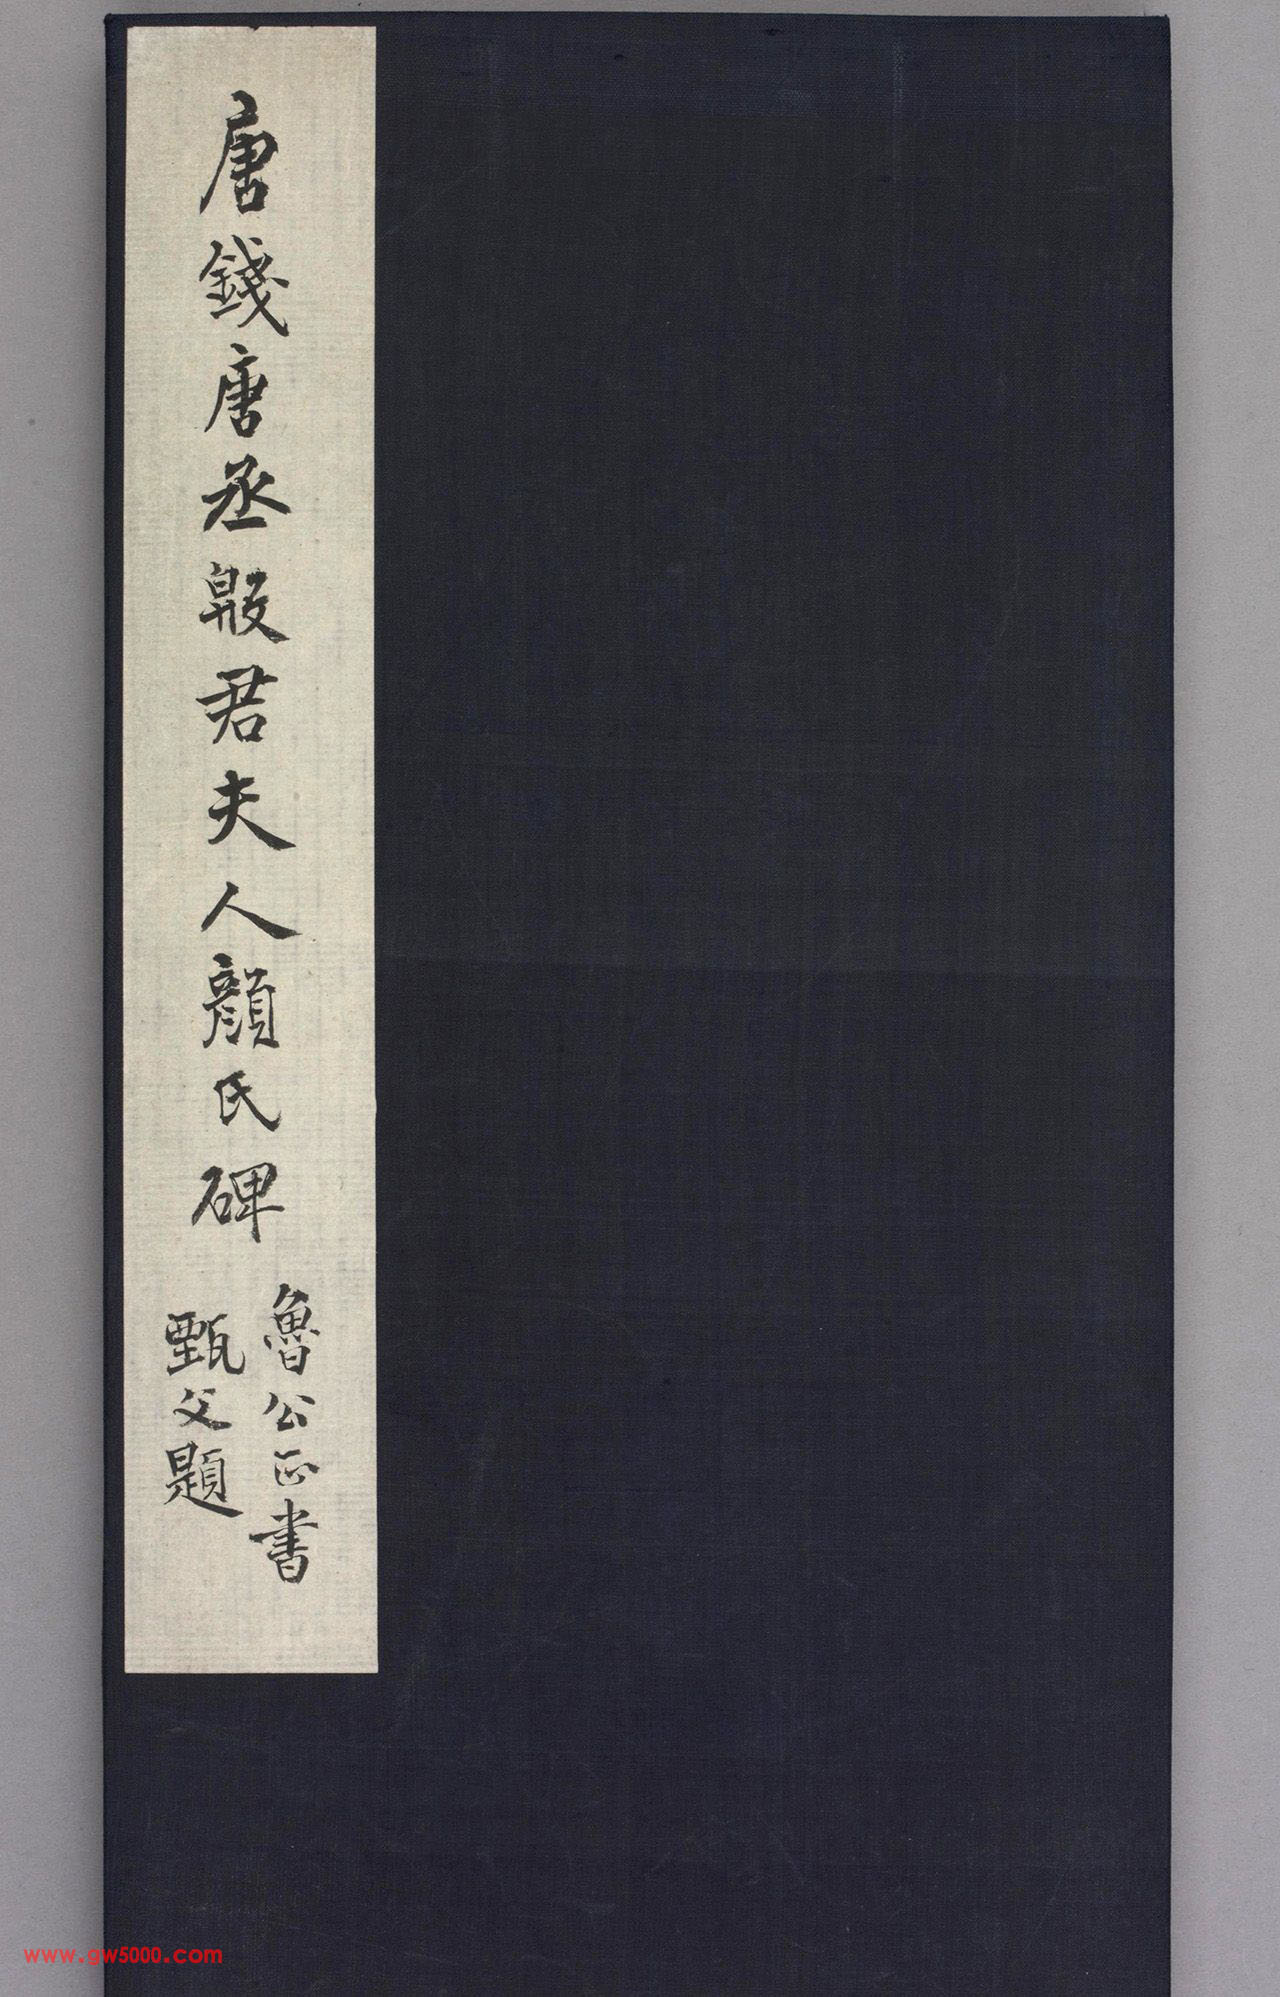 唐錢唐丞殷君夫人顏氏碑
魯公正書
甄父題
www.gw5000.com